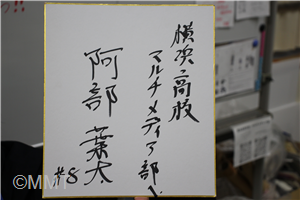 横浜高校
マルチメディア部へ
阿部 葉太
#8
©MMT